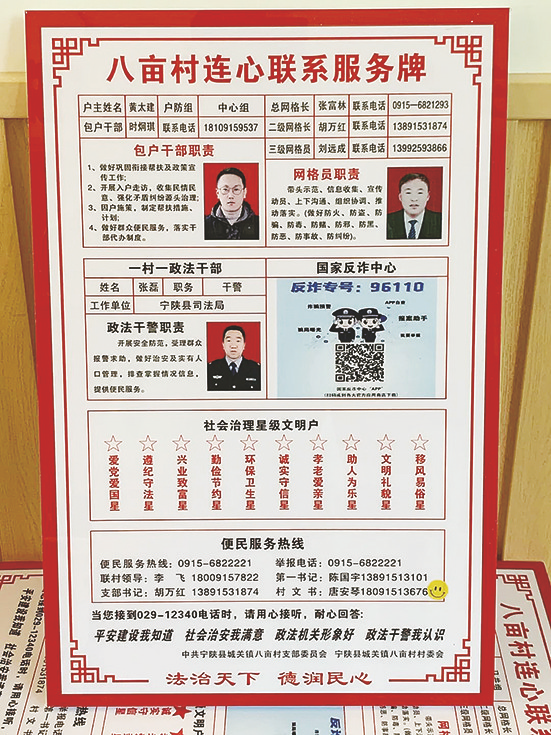 八亩村连心联系服务牌
户主姓名 黄太建 户防组 中心组 总网格长 张富林 联系电话 0915-6821293
包户干部 时炯琪 联系电话 18109159537 二级网格长 胡万红 联系电话 13891531874
三级网格员 刘远成 联系电话 13992593866
包户干部职责
1、做好巩固衔接帮扶及政策宣
传工作;
2、开展入户走访,收集民情民
意、强化矛盾纠纷源头治理;
3、因户施策,制定帮扶措施、
计划;
4、做好群众便民服务,落实干
部代办制度。
网格员职责
带头示范、信息收集、宣传
动员、上下沟通、组织协调、推
动落实。(做好防火、防盗、防
骗、防毒、防赌、防邪、防黑、
防恶、防事故、防纠纷)。
一村一政法干部
姓名 张磊 职务 干警
工作单位 宁陕县司法局
政法干警职责
开展安全防范,受理群众
报警求助,做好治安及实有人
口管理,排查掌握情况信息,
提供便民服务。
国家反诈中心
反诈专号:96110
诈骗预警
APP自查
报案助手
骗局曝光
我要举报
国家反诈中心“APP”
社会治理星级文明户
爱党爱国星
遵纪守法星
兴业致富星
勤俭节约星
环保卫生星
诚实守信星
孝老爱亲星
助人为乐星
文明礼貌星
移风易俗星
便民服务热线
便民服务热线:0915-6822221 举报电话:0915-6822221
联村领导:李 飞 18009157822 第一书记:陈国宇13891513101
支部书记:胡万红 13891531874 村 文 书:唐安琴1809151367
当您接到029-12340电话时,请用心接听,耐心回答:
平安建设我知道 社会治安我满意 政法机关形象好 政法干警我认识
中共宁陕县城关镇八亩村支部委员会 宁陕县城关镇八亩村村委会
法治天下 德润民心